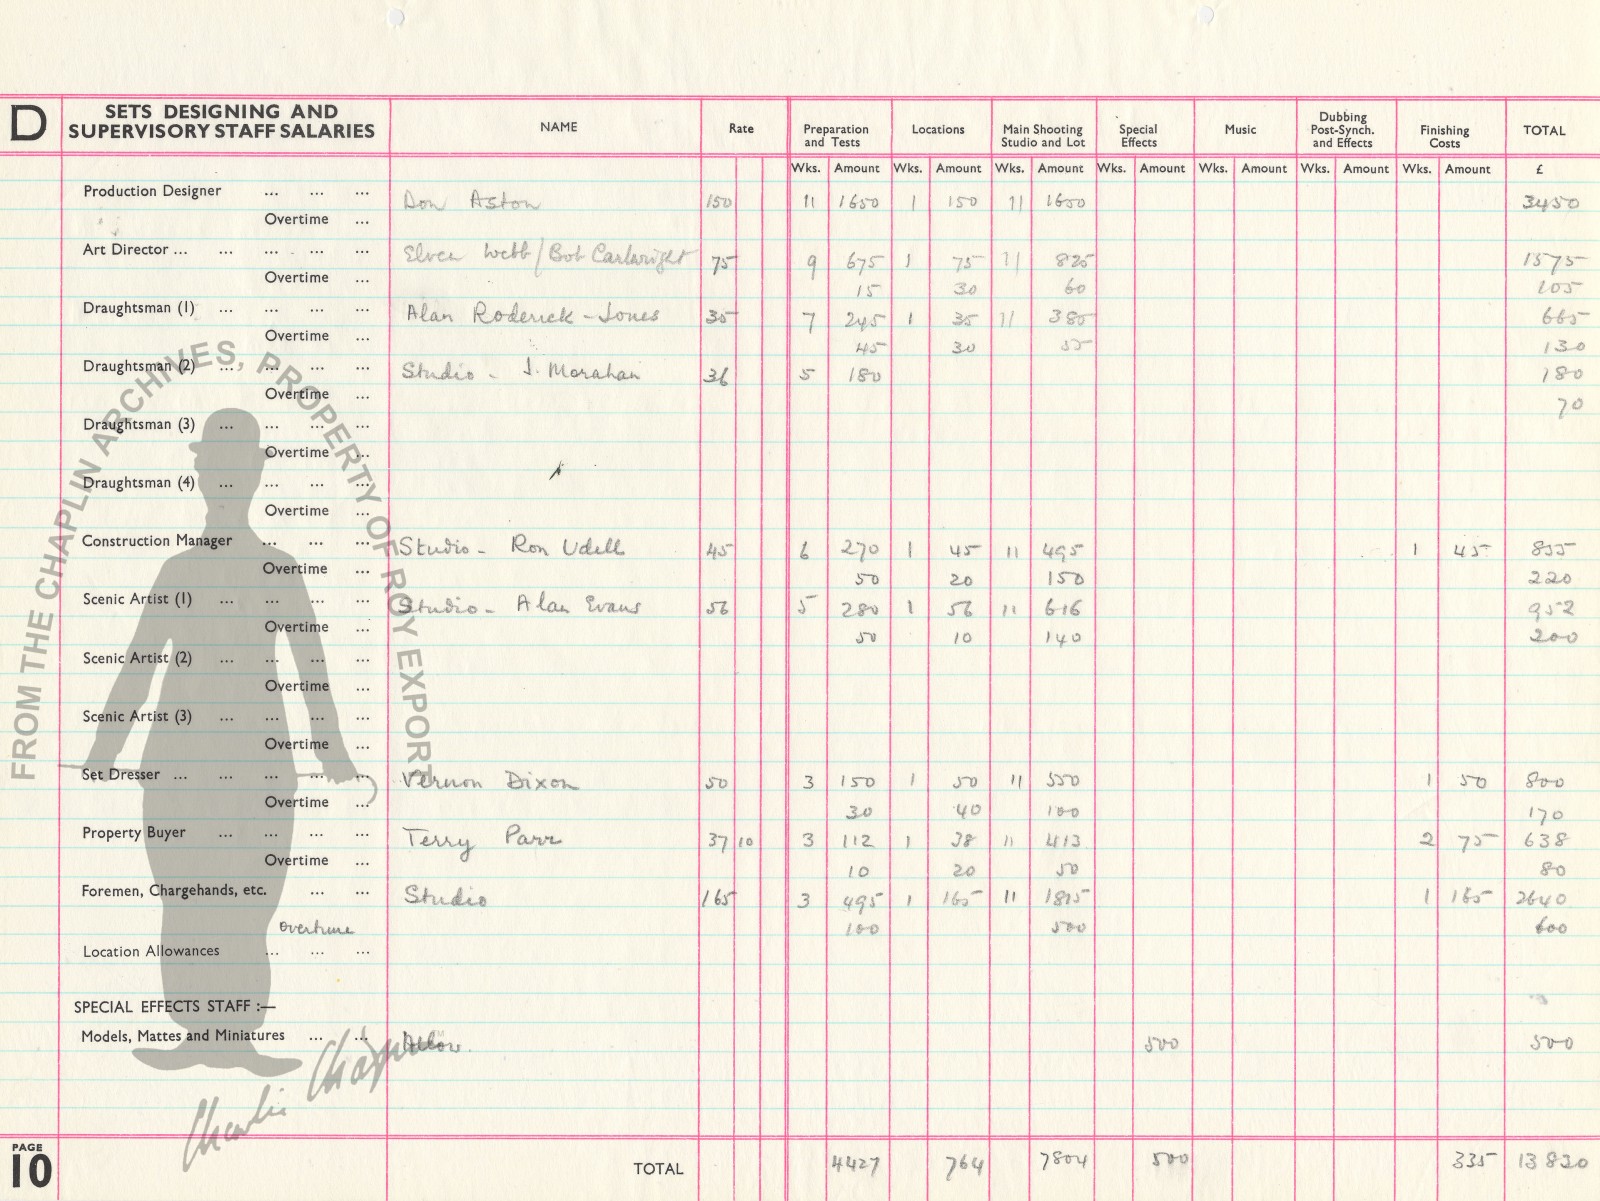 D SETS DESIGNING AND SUPERVISORY STAFF SALARIES NAME Rate Preparation and Tests Locations Main Shooting Studio and Lot Special Effects Music Dubbing Post-Synch. and Effects Finishing Costs TOTAL
Wks. Amount Wks. Amount Wks. Amount Wks. Amount Wks. Amount Wks. Amount Wks. Amount £
Production Designer ... ... ... Don Aston 150 11 1650 1 150 11 1650 3450
Overtime ...
Art Director ... ... ... ... ... Elven Webb/Bob Cartwright 75 9 675 1 75 11 825 1575
Overtime ... 15 30 60 105
Draughtsman (1) ... ... ... ... Alan Roderick-Jones 35 7 245 1 35 11 385 665
Overtime ... 45 30 55 130
Draughtsman (2) ... ... ... ... Studio - J. Morahan 36 5 180 180
Overtime ... 70
Draughtsman (3) ... ... ... ...
Overtime ...
Draughtsman (4) ... ... ... ...
Overtime ...
Construction Manager ... ... ... Studio - Ron Udell 45 6 270 1 45 11 495 1 45 855
Overtime ... 50 20 150 220
Scenic Artist (1) ... ... ... ... Studio - Alan Evans 56 5 280 1 56 11 616 952
Overtime ... 50 10 140 200
Scenic Artist (2) ... ... ... ...
Overtime ...
Scenic Artist (3) ... ... ... ...
Overtime ...
Set Dresser ... ... ... ... ... Vernon Dixon 50 3 150 1 50 11 550 1 50 800
Overtime ... 30 40 100 170
Property Buyer ... ... ... ... Terry Parr 37 10 3 112 1 38 11 413 2 75 638
Overtime ... 10 20 50 80
Foremen, Chargehands, etc. ... ... Studio 165 3 495 1 165 11 1815 1 165 2640
Overtime 100 500 600
Location Allowances ... ... ...
SPECIAL EFFECTS STAFF :—
Models, Mattes and Miniatures ... ... Allow. 500 500
PAGE 10 TOTAL 4427 764 7804 500 335 13820
FROM THE CHAPLIN ARCHIVES, PROPERTY OF ROY EXPORT
Charlie Chaplin